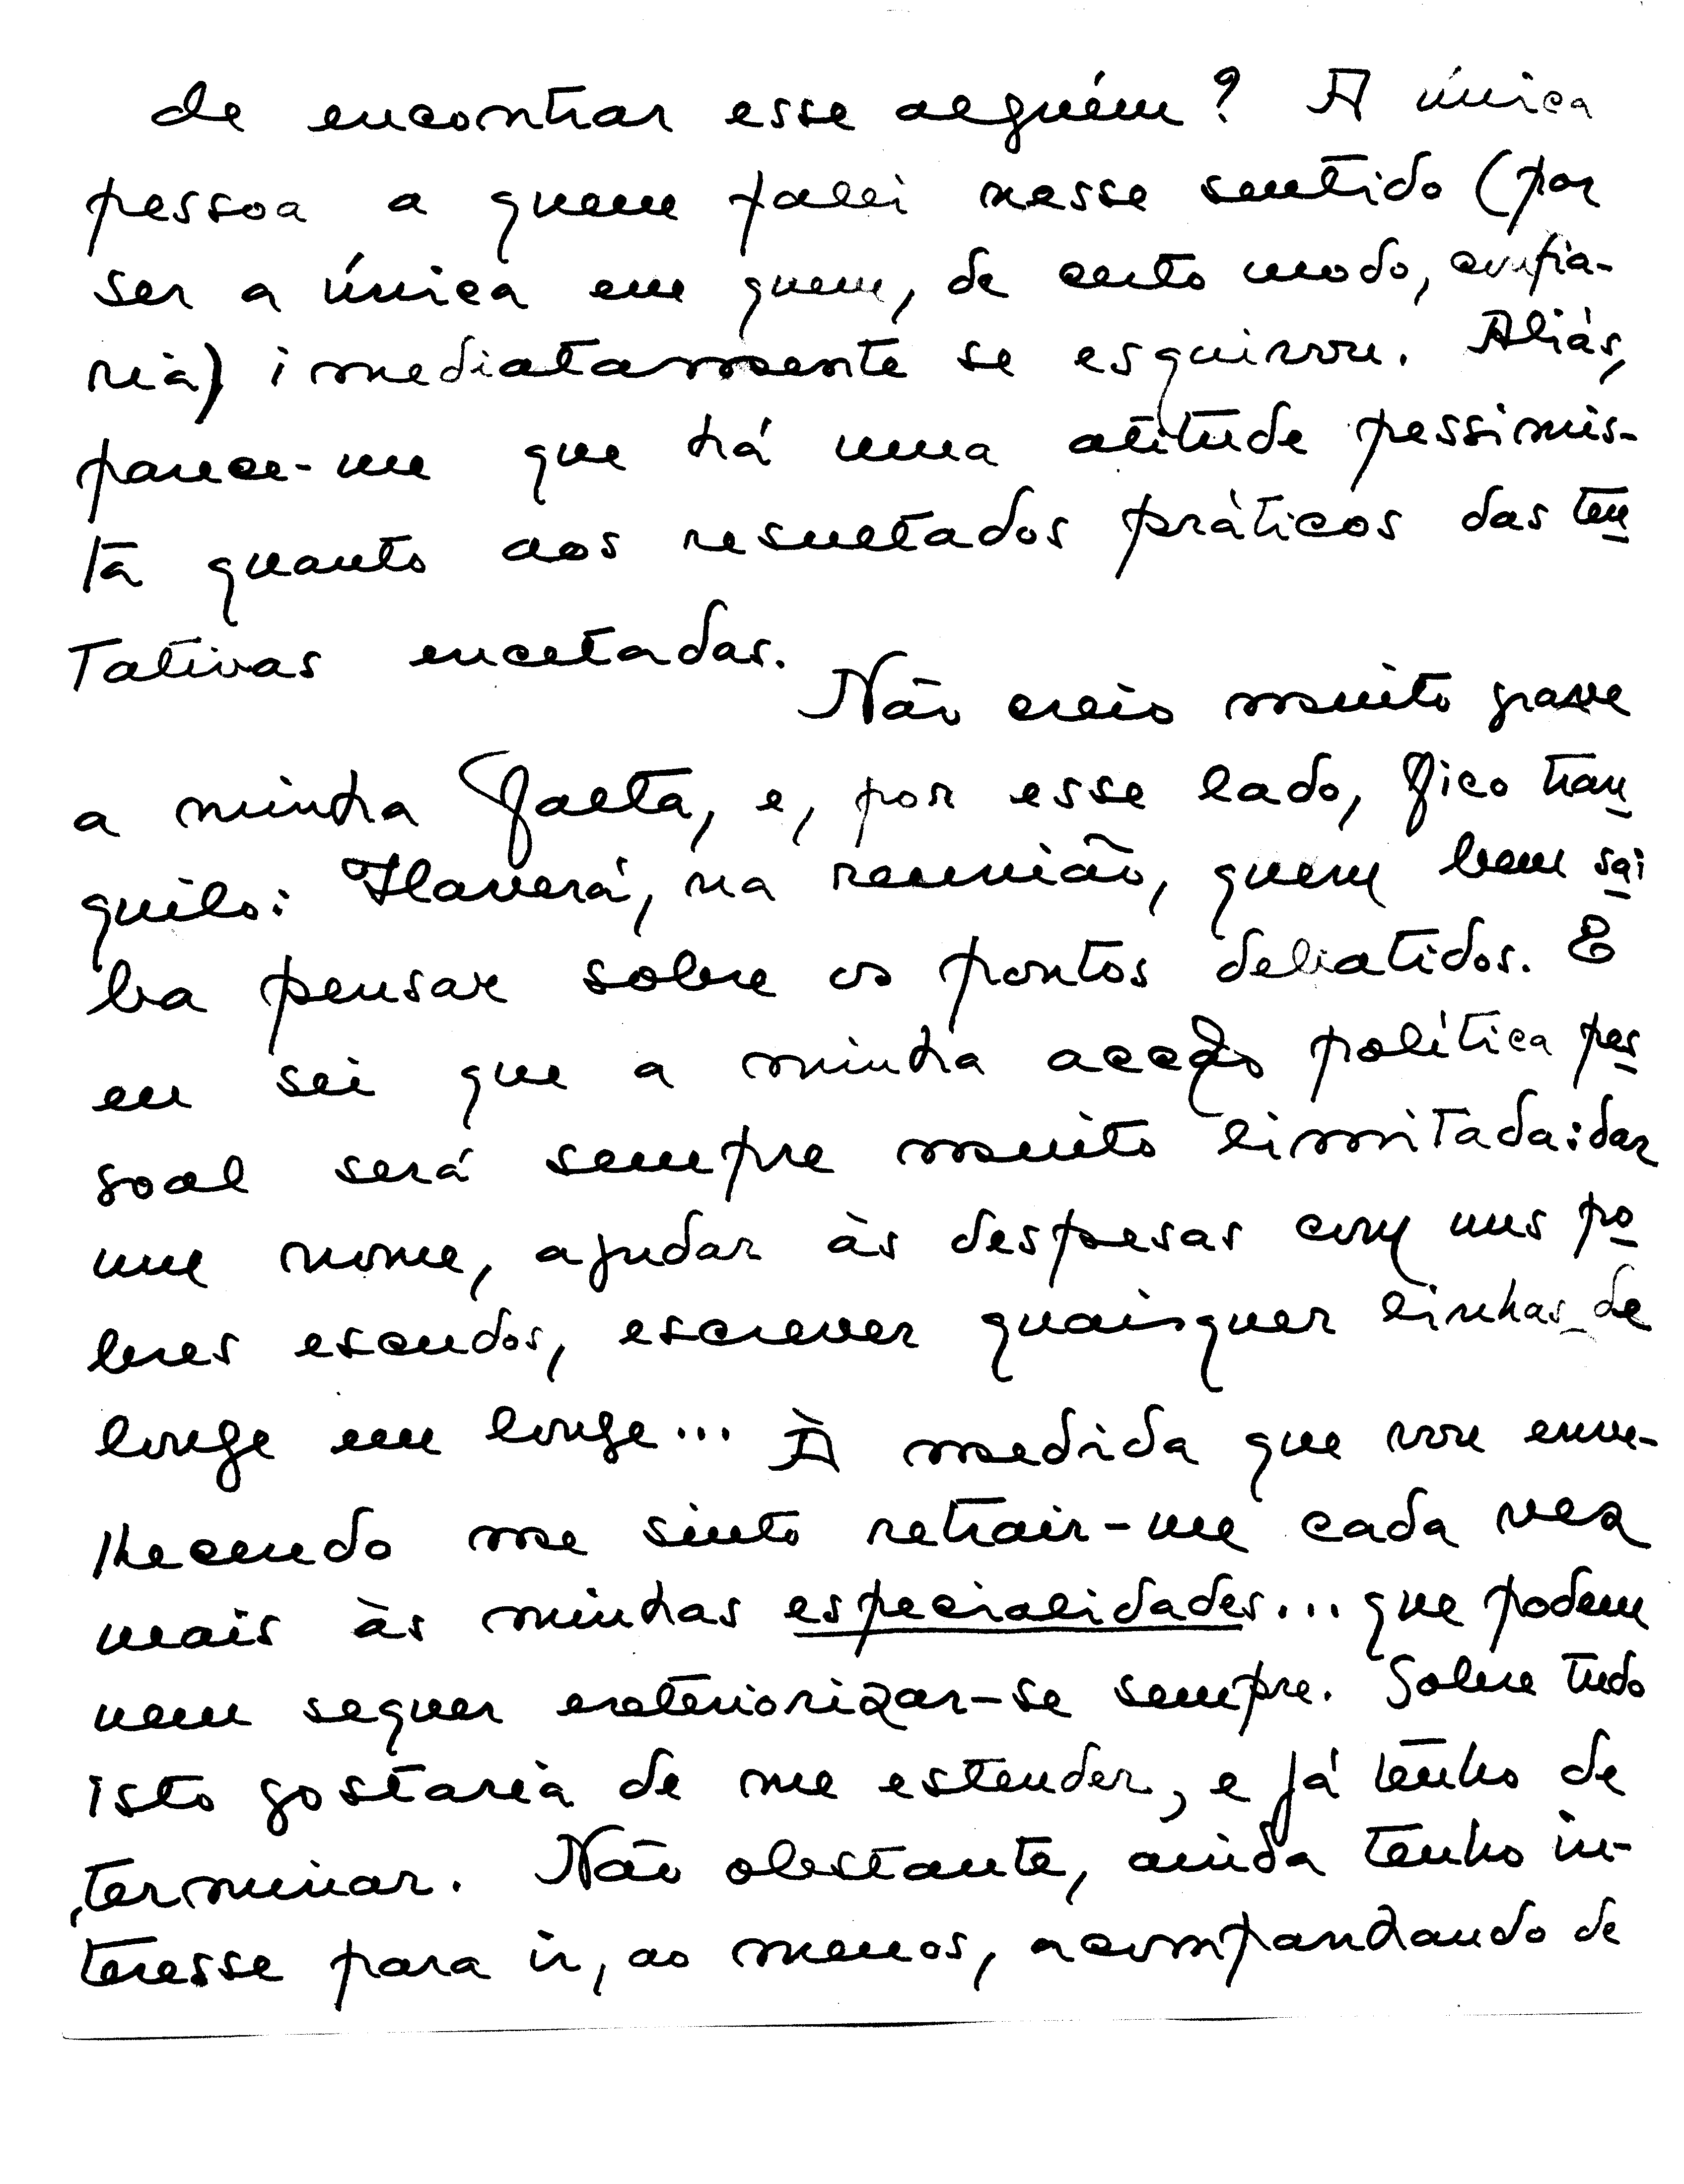 de encontrar esse alguém? A única
pessoa a quem falei nesse sentido (por
ser a única em quem, de certo modo, confia-
ria) imediatamente se esquivou. Aliás,
parece-me que há uma atitude pessimis-
ta quanto aos resultados práticos das ten
tativas encetadas.
Não creio muito grave
a minha falta, e, por esse lado, fico tran
quilo: Haverá, na reunião, quem bem sai
ba pensar sobre os pontos debatidos. E
eu sei que a minha acção política pes
soal será sempre muito limitada: dar
um nome, ajudar às despesas com uns po
bres escudos, escrever quaisquer linhas de
longe em longe... À medida que vou enve-
lhecendo me sinto retrair-me cada vez
mais às minhas especialidades... que podem
nem sequer exteriorizar-se sempre. Sobre tudo
isto gostaria de me estender, e já tenho de
terminar. Não obstante, ainda tenho in-
teresse para ir, ao menos, acompanhando de